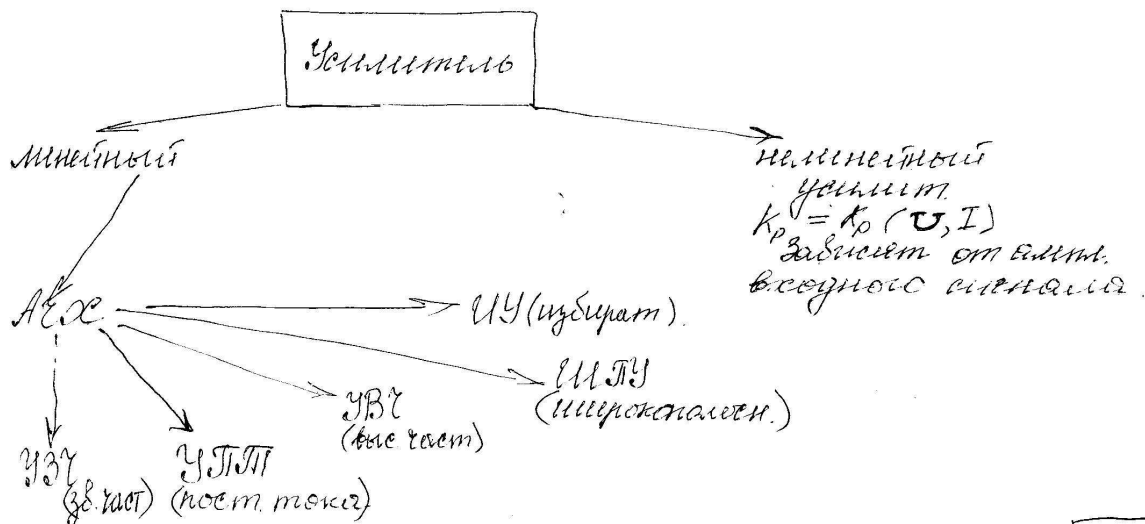 Усилитель
линейный
нелинейный
усилит.
Kp = Kp (U, I)
Зависит от ампл.
входного сигнала.
АЧХ
ИУ (избират).
ШПУ
(широкополосн.)
УВЧ
(выс част)
УЗЧ
(зв. част)
УПТ
(пост. тока)